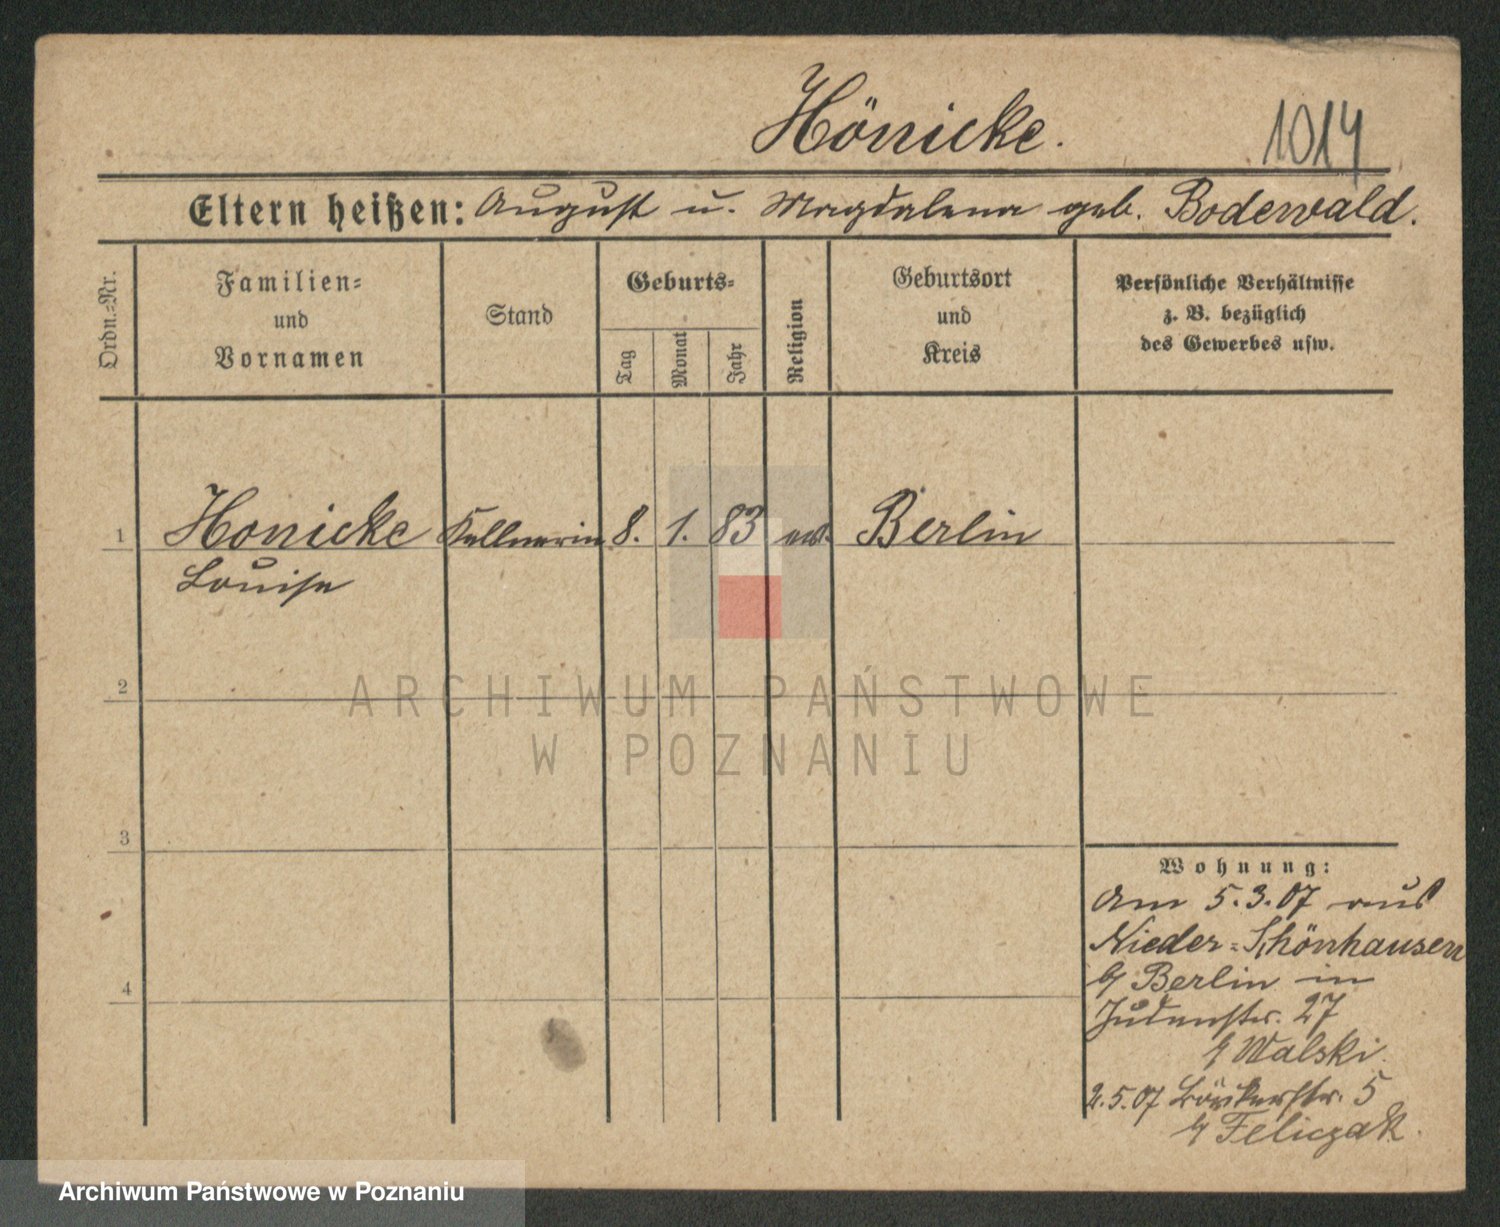 Hönicke.
1014
Eltern heißen: August u. Magdalena geb. Bodewald.
Ordn.-Nr.
Familien-
und
Vornamen
Stand
Geburts-
Tag
Monat
Jahr
Religion
Geburtsort
und
Kreis
Persönliche Verhältnisse
z. B. bezüglich
des Gewerbes usw.
1 Honicke Kellnerin 8. 1. 83 ev. Berlin
Louise
2
3
4
Wohnung:
Am 5.3.07 aus
Nieder-Schönhausen
b/ Berlin in
Judenstr. 27
b/ Walski.
2.5.07 Bäckerstr. 5
b/ Feliczak.
ARCHIWUM PAŃSTWOWE
W POZNANIU
Archiwum Państwowe w Poznaniu